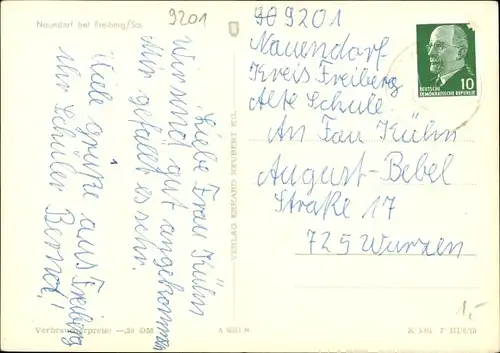 Naundorf bei Freiberg/Sa.
9201
Liebe Frau Kühn
Wir sind gut angekommen
Mir gefällt es sehr.
Viele Grüße aus Freiberg
Ihr Schüler Bernd!
9201
Nauendorf
Kreis Freiberg
Alte Schule
An Fau Kühn
August-Bebel
Straße 17
725 Wurzen
10
DEUTSCHE
DEMOKRATISCHE REPUBLIK
VERLAG ERHARD NEUBERT KG,
Verbraucherpreis: —,20 DM
1,-